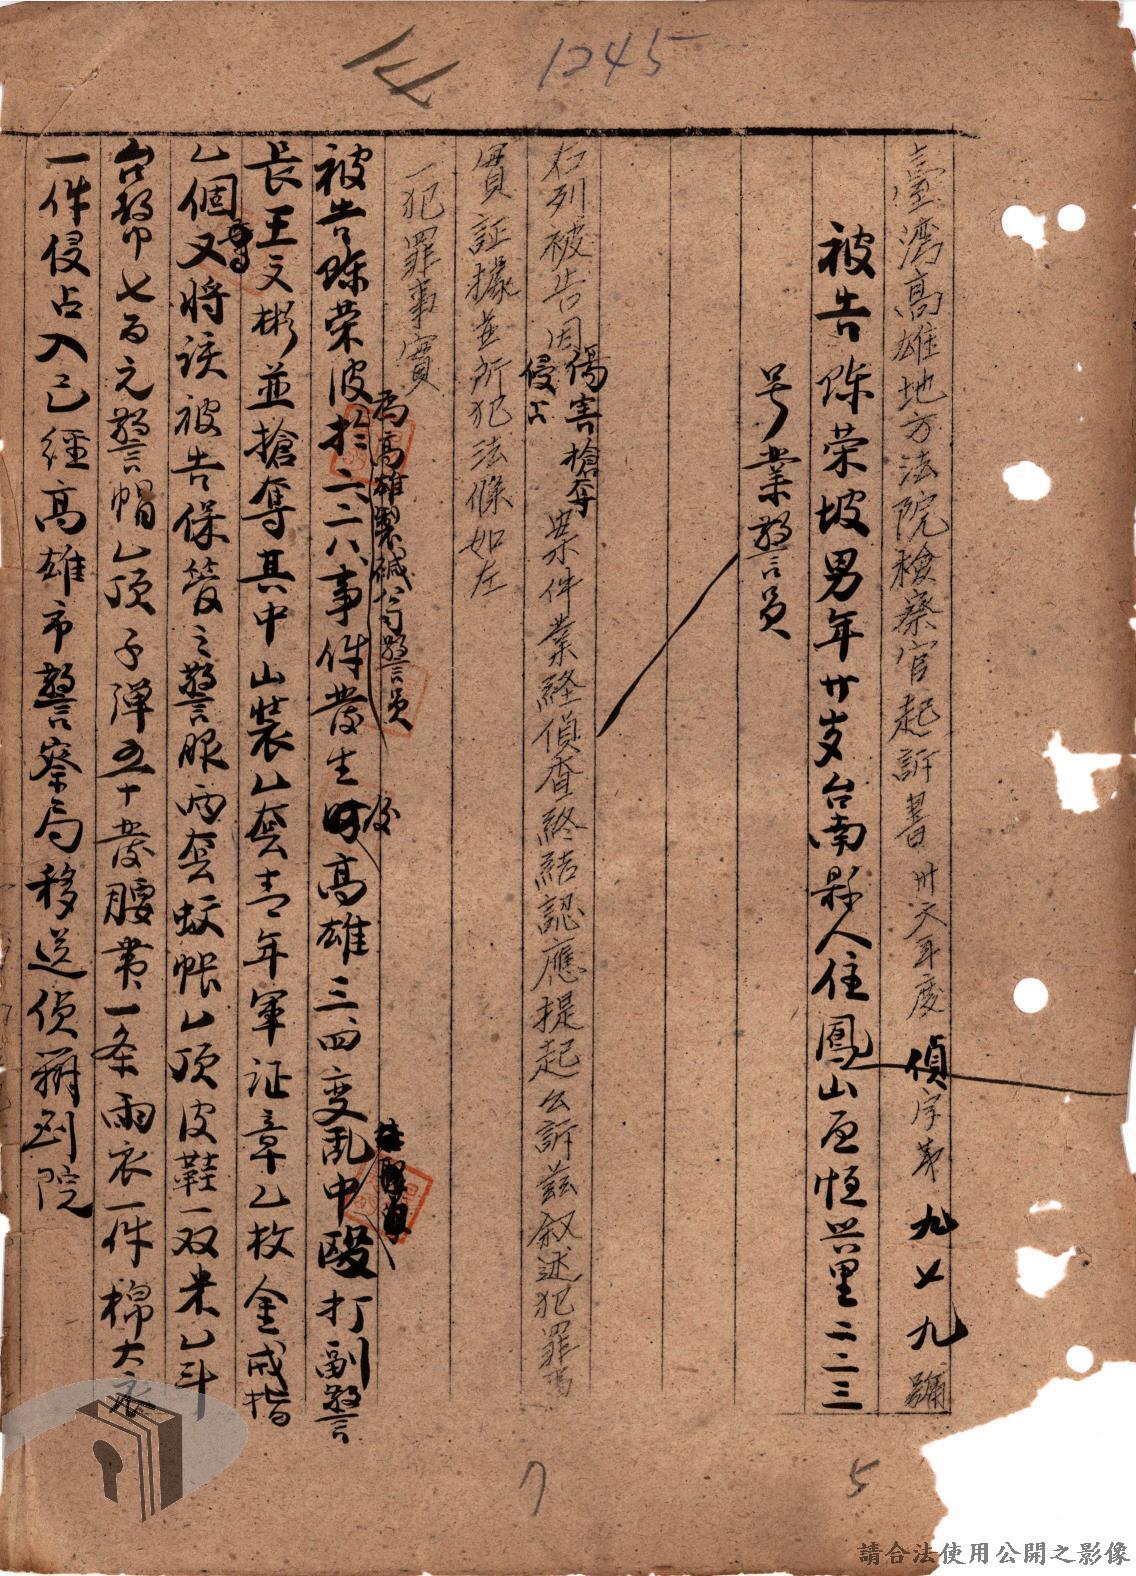 1245
臺灣高雄地方法院檢察官起訴書 卅六年度偵字第九七九號
被告陈荣坡男年廿支台南縣人住鳳山區恒興里二二三
号業警員
右列被告因傷害搶奪侵占案件業経偵查終結認應提起公訴茲叙述犯罪事
實証據並所犯法條如左
一犯罪事實
為高雄製碱公司警員
被告陈荣波於二二八事件發生後高雄三四変乱中毆打副警
長王文彬並搶奪其中山裝乙套青年軍证章乙枚金戒指
乙個又將该被告保管之警服兩套蚊帐乙頂皮鞋一双米乙斗
台幣七百元警帽乙顶子弹五十發腰帶一条雨衣一件棉大衣
一件侵占入己經高雄市警察局移送偵辦到院
7
5
請合法使用公開之影像